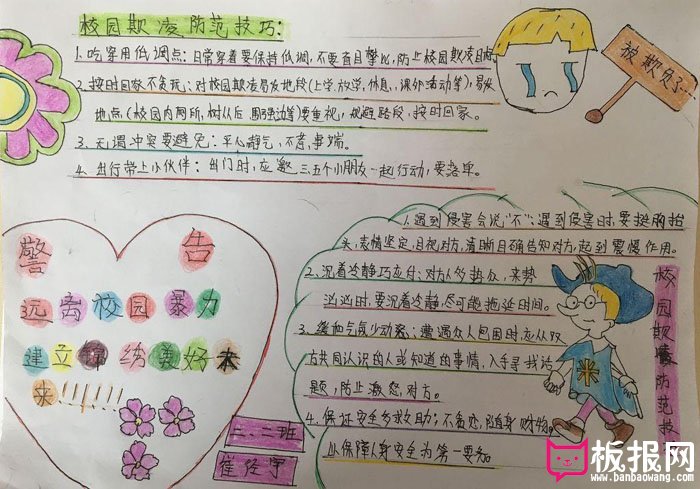 校园欺凌防范技巧:
1.吃穿用低调点:日常穿着要保持低调,不要盲目攀比,防止校园欺凌目标
2.按时回家不贪玩:对校园欺凌易发地段(上学,放学,休息,课外活动等),易发
地点(校园内厕所,树丛后,围强边等要重视,规避路段,按时回家。
3.无谓冲突要避免:平心静气,不惹事端。
4.出行带上小伙伴:出门时,应邀三五个小朋友一起行动,要落单。
被欺负了…
警告
远离校园暴力
建立锦绣美好未
来!!!!!!!
二.二班
崔
1.遇到侵害会说"不":遇到侵害时,要挺胸抬
头,表情坚定,目视对方,清晰目确告知对方,起到震慑作用。
2.沉着冷静巧应付:对方人多势众,来势
汹汹时,要沉着冷静,尽可能拖延时间。
3.缓和气氛少动怒:遭遇众人包围时,应从双
方共同认识的人或知道的事情,入手寻找话
题,防止激怒对方。
4.保证安全多求助:不贪恋,随身财物。
以保障人身安全为第一要务。
校园欺凌防范技
板报网
www.banbaowang.com